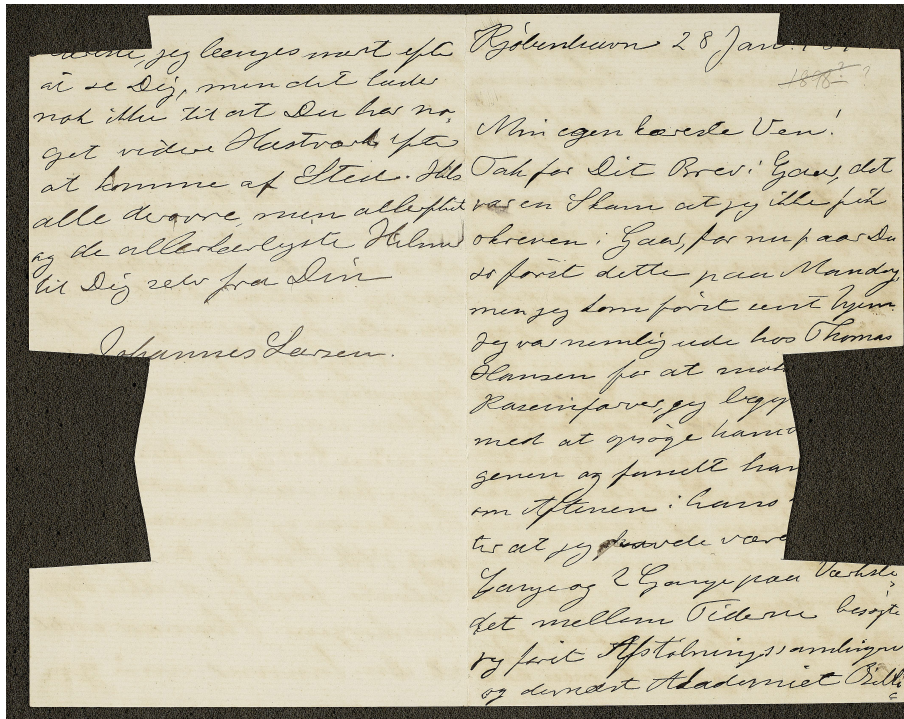 jeg længes snart efter
at se Dig, men det lader
nok ikke til at Du har no-
get videre Hastværk efter
at komme af Sted. Hils
alle derovre, men allerflest
og de allerkærligste Hilsner
til Dig selv fra Din
Johannes Larsen.
Kjøbenhavn 28 Jan.
1898? ?
Min egen kæreste Ven!
Tak for Dit Brev i Gaar, det
var en Skam at jeg ikke fik
skreven i Gaar, for nu faar Du
jo først dette paa Mandag,
men jeg kom først sent hjem.
Jeg var nemlig ude hos Thomas
Hansen for at
Kaseinfarver, jeg
med at opsøge ham
genen og fandt ham
om Aftenen i hans
ter at jeg havde være
Gange og 2 Gange paa Værkste
det mellem Tiderne besøgte
jeg først Afstøbningssamlingen
og dernæst Akademiet